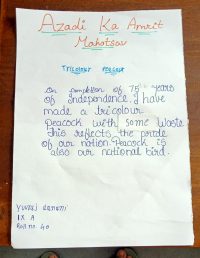 Azadi Ka Amrit
Mahotsav
Tricolour Peacock
On completion of 75th years
of Independence. I have
made a tricolour
Peacock with some waste
This reflects the pride
of our nation. Peacock is
also our national bird.
Yuvraj
IX A
Roll no 40